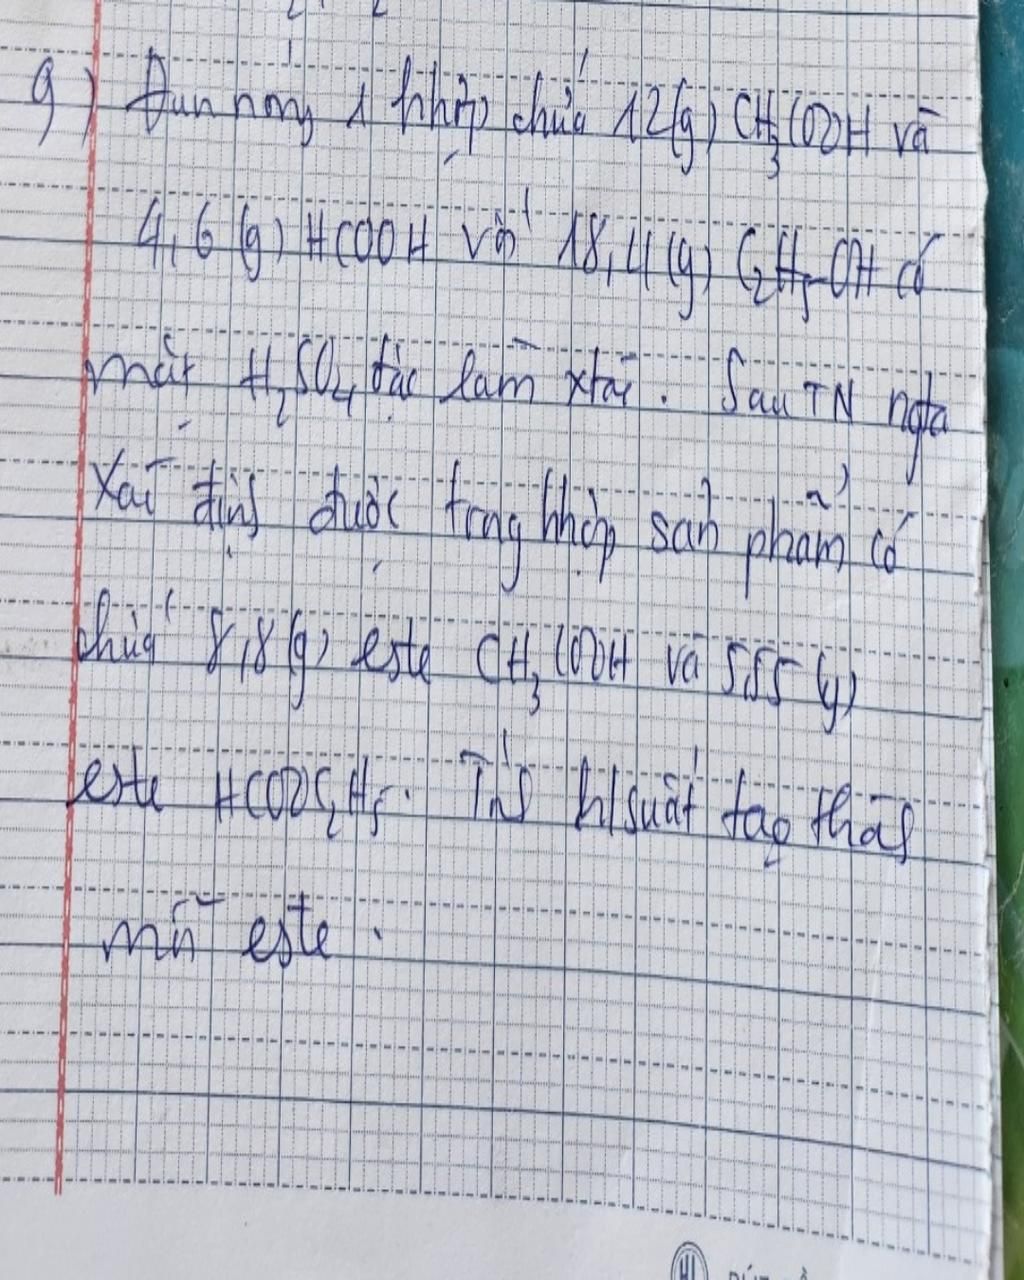 9) Đun nóng 1 hhợp chứa 12(g) CH3COOH và
4,6 (g) HCOOH với 18,4(g) C2H5-OH có
mặt H2SO4 đặc làm xtác. Sau TN ngta
Xác định được trong hhợp sản phẩm có
chứa 8,8(g) este CH3COOH và 5,55 (g)
este HCOOC2H5. Tính h/suất tạo thành
mỗi este.